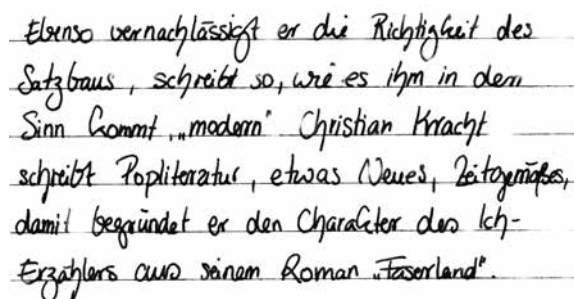 Ebenso vernachlässigt er die Richtigkeit des
Satzbaus, schreibt so, wie es ihm in den
Sinn kommt, „modern“ Christian Kracht
schreibt Popliteratur, etwas Neues, Zeitgemäßes,
damit begründet er den Charakter des Ich-
Erzählers aus seinem Roman „Faserland“.